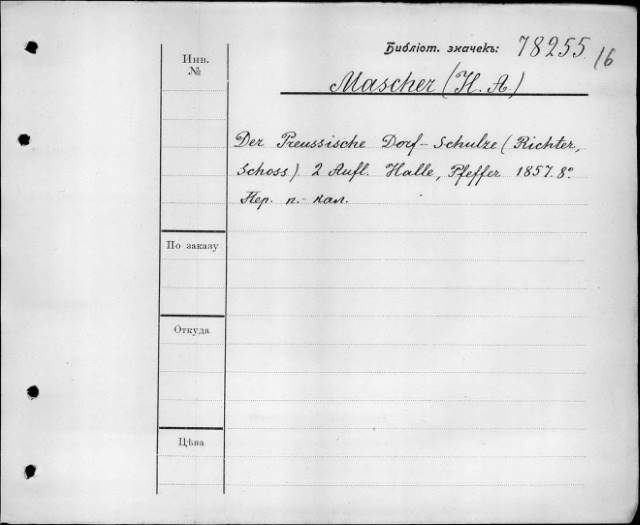 Библіот. значекъ: 78255/16
Инв. №
Mascher (H. A.)
Der Preussische Dorf-Schulze (Richter,
Schoss) 2 Aufl. Halle, Pfeffer 1857. 8°.
Пер. п.-кал.
По заказу
Откуда
Цѣна